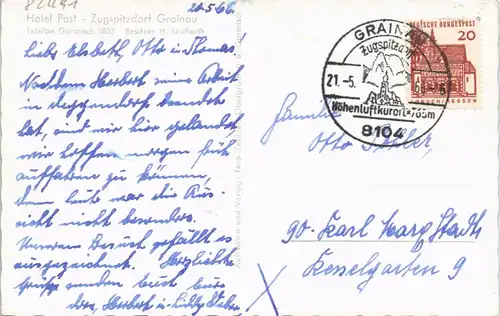 82491
Hotel Post - Zugspitzdorf Grainau
Telefon Garmisch Besitzer H.
20.5.66.
Liebe Elsbeth, Otto u. Thomas!
Nachdem Herbert seine Arbeit
in Deggendorf beendet
hat, sind wir hier gelandet
wir hoffen morgen früh
auffahren zu können,
denn heute war die Aus-
sicht nicht besonders.
Unserem Besuch gefällt es
ausgezeichnet. Herzlichste
Grüße senden Euch Eure
Herbert u.
GRAINAU
Zugspitzdorf
21.-5.
Höhenluftkurort
8104
DEUTSCHE BUNDESPOST
20
Familie
Otto
90. Karl Marx Stadt
Kesselgarten 9